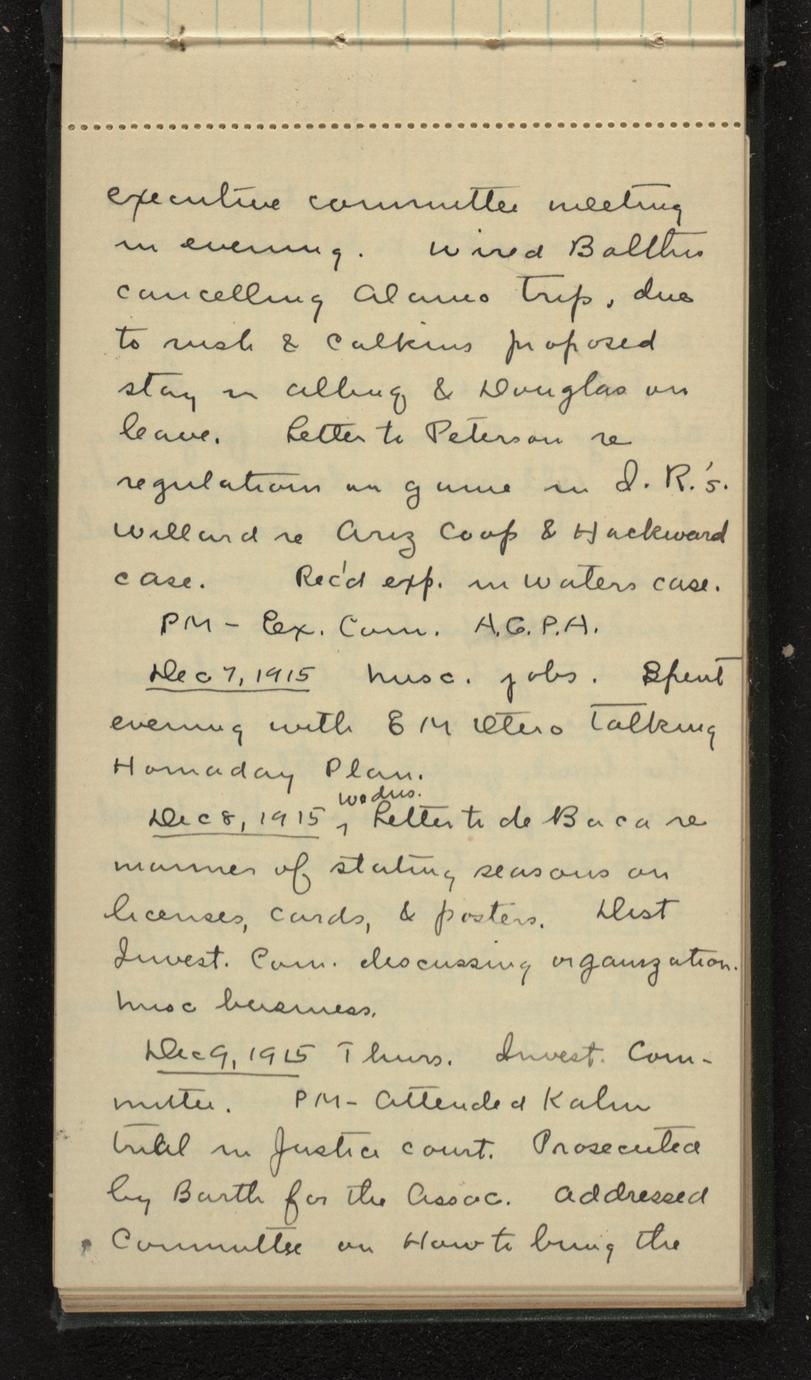 executive committee meeting
in evening. Wired Balthis
cancelling Alamo trip, due
to rush & Calkins proposed
stay in Albuq & Douglas on
leave. Letter to Peterson re
regulations on game in I. R.'s.
Willard re Ariz Coop & Hackward
case. Rec'd exp. in Waters case.
PM - Ex. Com. A.G.P.A.
Dec 7, 1915 Misc. jobs. Spent
evening with E M Otero talking
Hornaday Plan.
Wednes.
Dec 8, 1915, Letter to de Baca re
manner of stating seasons on
licenses, cards, & posters. Dist
Invest. Com. discussing organization.
Misc business.
Dec 9, 1915 Thurs. Invest. Com-
mittee. PM- Attended Kahn
trial in Justice court. Prosecuted
by Barth for the Assoc. Addressed
Committee on How to bring the